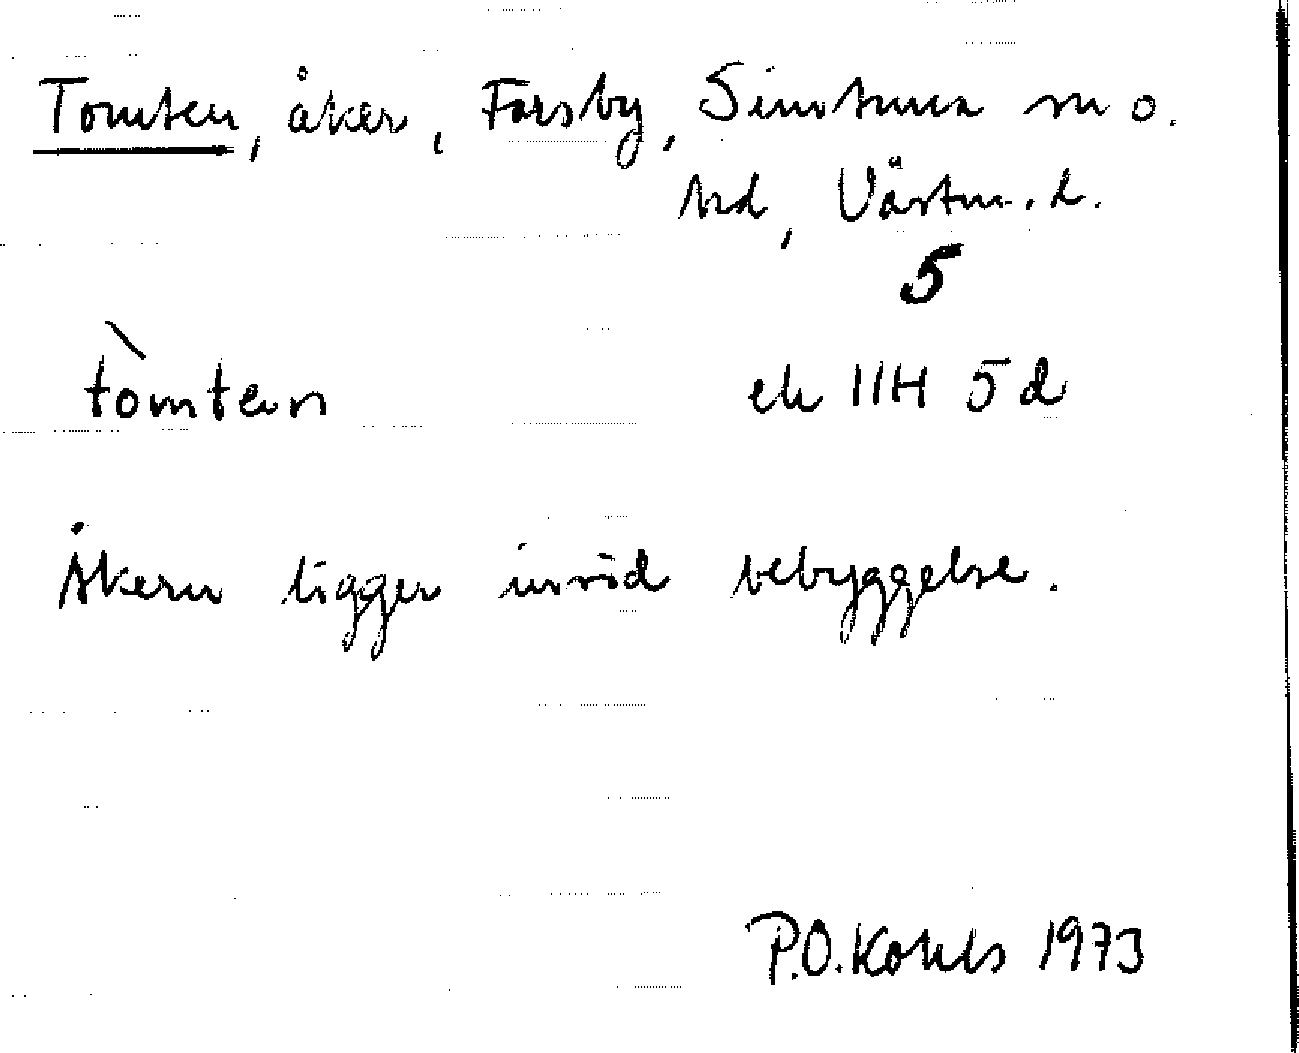 Tomten, åker, Forsby, Simtuna sn o.
hd, Västm. l.
5
tòmten ek 11H 5d
Åkern ligger invid bebyggelse.
P.O. Kohls 1973